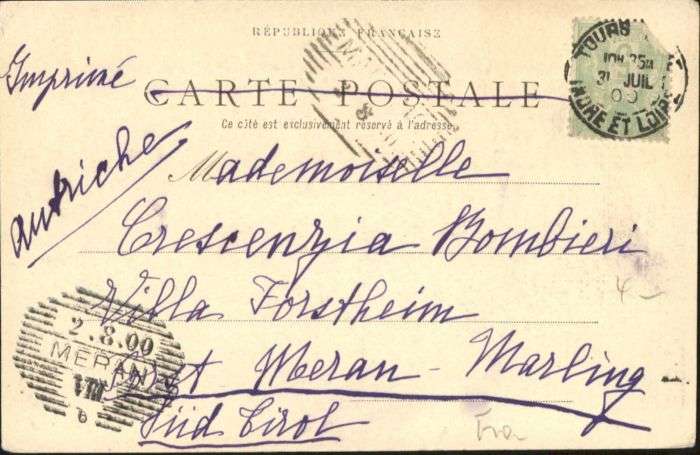 RÉPUBLIQUE FRANÇAISE
Imprimé
CARTE POSTALE
Ce côté est exclusivement réservé à l'adresse
TOURS
10H 35M
31 JUIL
00
INDRE ET LOIRE
Autriche
Mademoiselle
Crescenzia Bombieri
Villa Forstheim
Post Meran - Marling
Süd Tirol
2.8.00
MERAN
VIII
b
4 -